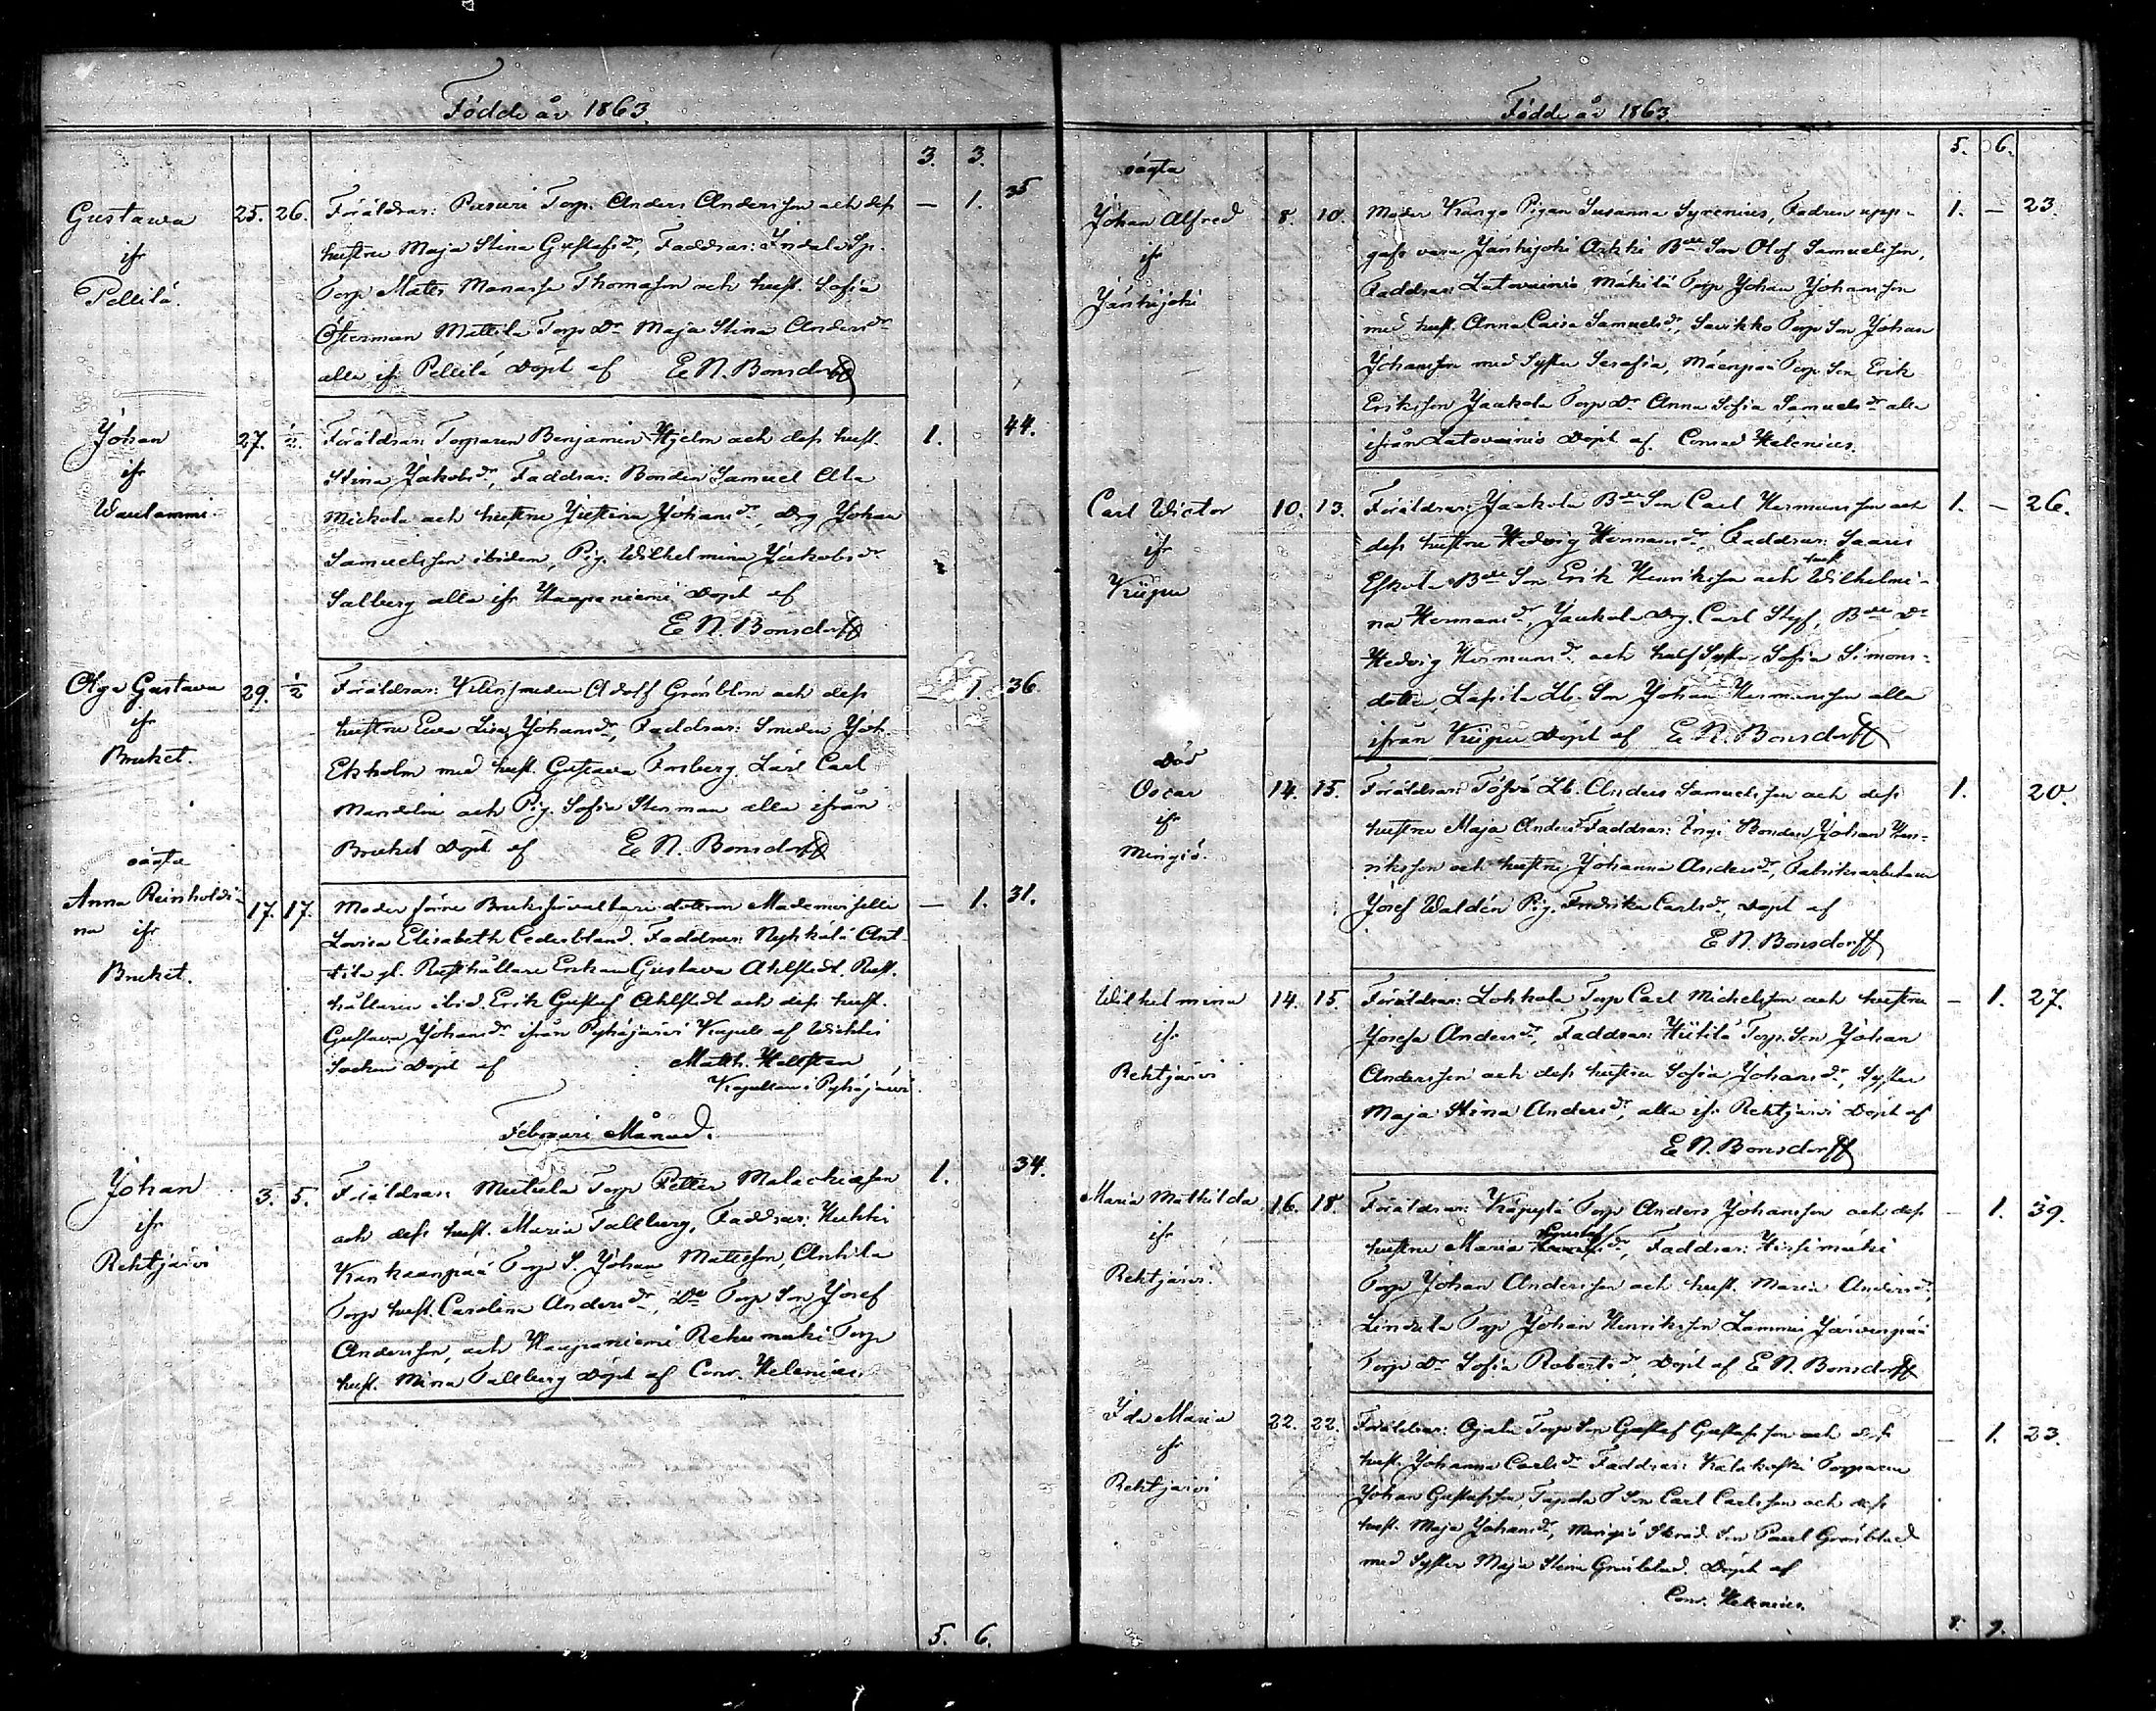 Födde år 1863.
3. 3.
Gustawa
ifr
Pellilä.
25. 26.
Föräldrar: Pasuri Torp. Anders Andersson och dess
hustru Maja Stina Gustafsdr, Faddrar: Indala Sp.
Torp. Matts Manasse Thomasson och hust. Sofia
Österman Mattila Torp Dr Maja Stina Andersdr
alla ifr Pellilä Döpt af E N. Bonsdorff
— 1. 35
Johan
ifr
Waulammi
27. 1/2.
Föräldrar: Torparen Benjamin Hjelm och dess hust.
Stina Jakobsdr, Faddrar: Bonden Samuel Ala
Mickola och hustru Justina Johansdr, Drg Johan
Samuelsson ibidem, Pig. Wilhelmina Jakobsdr
Salberg alla ifr Haapaniemi Döpt af
E N. Bonsdorff
1. 44.
Olga Gustava
ifr
Bruket.
29. 1/2
Föräldrar: Klensmeden Adolf Grönblom och dess
hustru Ewa Lisa Johansdr, Faddrar: Smeden Joh.
Ekholm med hust. Gustava Forsberg. Lärl Carl
Mandelin och Pig. Sofia Stenman alla ifrån
Bruket Döpt af E N. Bonsdorff
— 1. 36.
oägta
Anna Reinholdi-
na ifr
Bruket.
17. 17.
Moder förre Bruksförvaltare dottren Mademoiselle
Lovisa Elisabeth Cederbland. Faddrar: Nyhkälä Ant-
tila gl. Rusthållare Enkan Gustava Ahlstedt. Rust.
hållaren ibid. Erik Gustaf Ahlstedt och dess hust.
Gustava Johansdr ifrån Pyhäjärvi Kapell af Wichtis
Socken Döpt af Matth. Hallstén
Kapellan i Pyhäjärvi.
— 1. 31.
Februari Månad.
Johan
ifr
Rehtjärvi
3. 5.
Föräldrar: Torp Petter Malachiasson
och dess hust. Maria Tallberg, Faddrar: Huhtis
Kankaanpää Torp S. Johan Matsson, Anttila
Torp hust. Carolina Andersdr, Do Torp Son Josef
Andersson, och Haapaniemi Rekumäki Torp
hust. Mina Tallberg Döpt af Conr. Helenius.
1. 34.
5. 6.
Födde år 1863.
5. 6.
oägta
Johan Alfred
ifr
Jänhijoki
8. 10.
Moder Kango Pigan Susanna Syrenius, Fadren upp-
gafs vara Jänhijoki Arkki Bde Son Olof Samuelsson,
Faddrar: Latovainio Mäkilä Torp Johan Johansson
med hust. Anna Caisa Samuelsdr, Savikko Torp Son Johan
Johansson med Syster Serafia, Mäenpää Torp Son Erik
Eriksson Jaakola Torp Dr Anna Sofia Samuelsdr alla
ifrån Latovainio Döpt af. Conrad Helenius.
1. — 23.
Carl Wictor
ifr
10. 13.
Föräldrar: Jaakola Bde Son Carl Hermansson och
dess hustru Hedvig Hermansdr, Faddrar: Saaris
Eskola Bde Son Erik Henriksson och hust Wilhelmi-
na Hermansdr, Jaakola Drg. Carl Styf, Bde Dr
Hedvig Hermansdr och half Syster Sofia Simons-
dotter, Lassila Lb. Son Johan Hermansson alla
ifrån Döpt af E. N. Bonsdorff
1. — 26.
Död
Oscar
ifr
Mengiö.
14. 15.
Föräldrar: Töfvä Lb. Anders Samuelsson och dess
hustru Maja Andersdr Faddrar: Ingi Bonden Johan Hen-
riksson och hustru Johanna Andersdr, Fabriksarbetaren
Josef Waldén Pig. Fredrika Carlsdr, Döpt af
E N. Bonsdorff
1. 20.
Wilhelmina
ifr
Rehtjärvi
14. 15.
Föräldrar: Lohkola Torp Carl Michelsson och hustru
Josefa Andersdr, Faddrar: Hiitilä Torp. Son Johan
Andersson och dess hustru Sofia Johansdr, Syster
Maja Stina Andersdr, alla ifr Rehtjärvi Döpt af
E N. Bonsdorff
— 1. 27.
Maria Mathilda
ifr
Rehtjärvi.
16. 18.
Föräldrar: Käpylä Torp Anders Johansson och dess
hustru Maria Gustafsdr, Faddrar: Hirsimäki
Torp Johan Andersson och hust. Maria Andersdr,
Lindula Torp Johan Henriksson Lammi Järvenpää
Torp Dr Sofia Robertsdr, Döpt af E N. Bonsdorff
— 1. 39.
Ida Maria
ifr
Rehtjärvi
22. 22.
Föräldrar: Ojala Torp Son Gustaf Gustafsson och dess
hust. Johanna Carlsdr Faddrar: Kalakoski Torparen
Johan Gustafsson, Tapola T Son Carl Carlsson och dess
hust. Maja Johansdr, Mengiö Skräd. Son Paul Grönblad
med Syster Maja Stina Grönblad. Döpt af
Conr. Helenius.
— 1. 23.
8. 9.